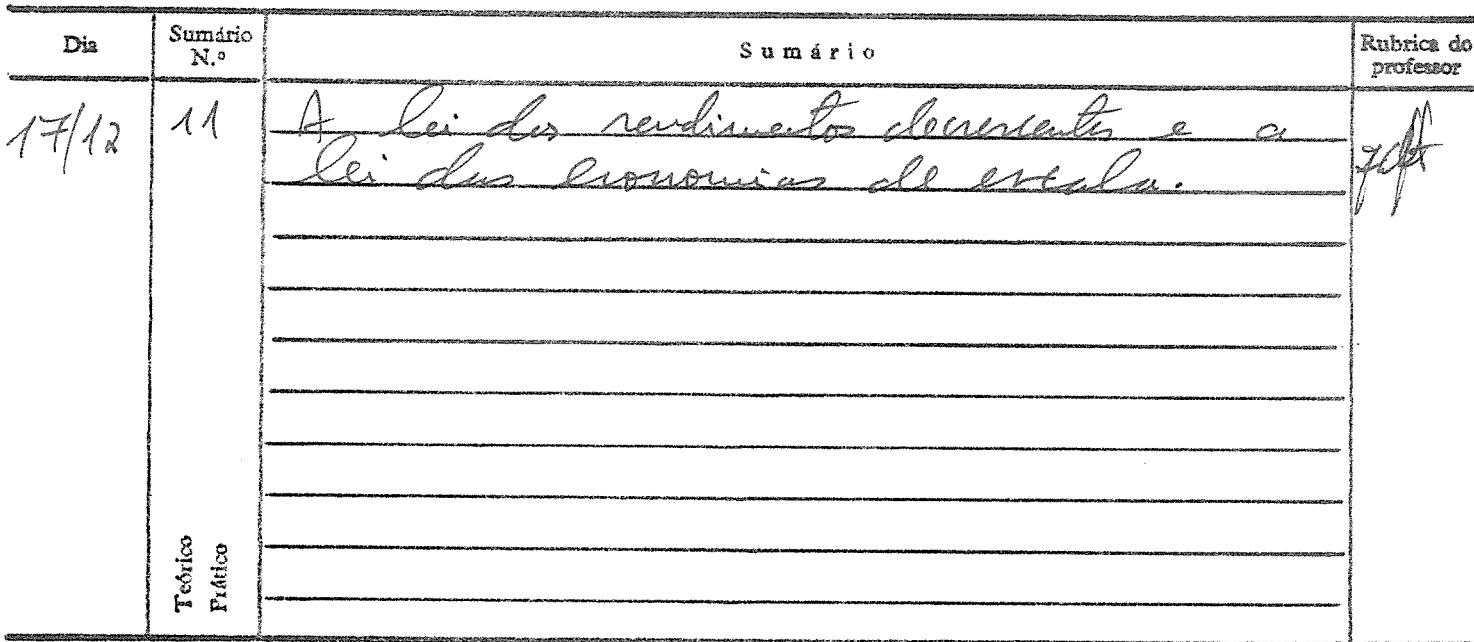 Dia
Sumário N.º
Sumário
Rubrica do professor
17/12
11
A lei dos rendimentos decrescentes e a
lei das economias de escala.
Teórico
Prático